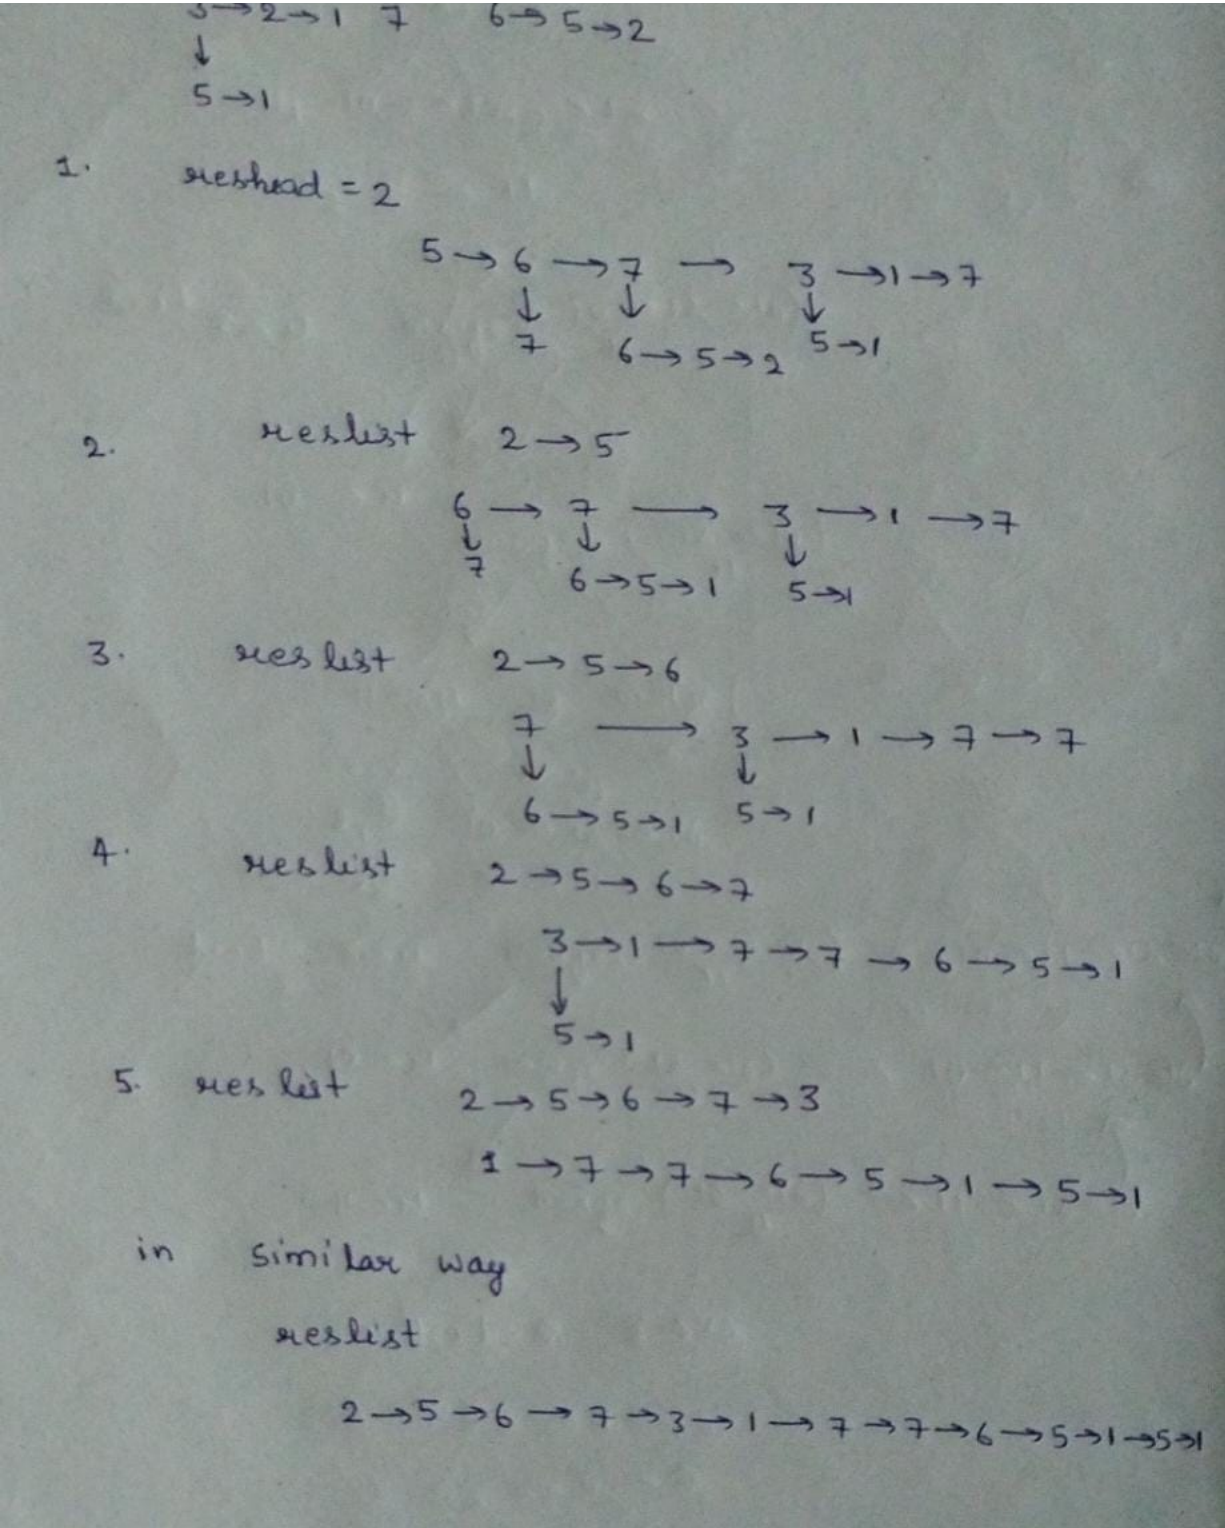 3→2→1 7 6→5→2
↓
5→1
1. reshead = 2
5→6→7→ 3→1→7
↓ ↓ ↓
7 6→5→2 5→1
2. reslist 2→5
6→7→3→1→7
↓ ↓ ↓
7 6→5→1 5→1
3. reslist 2→5→6
7→3→1→7→7
↓ ↓
6→5→1 5→1
4. reslist 2→5→6→7
3→1→7→7→6→5→1
↓
5→1
5. reslist 2→5→6→7→3
1→7→7→6→5→1→5→1
in similar way
reslist
2→5→6→7→3→1→7→7→6→5→1→5→1